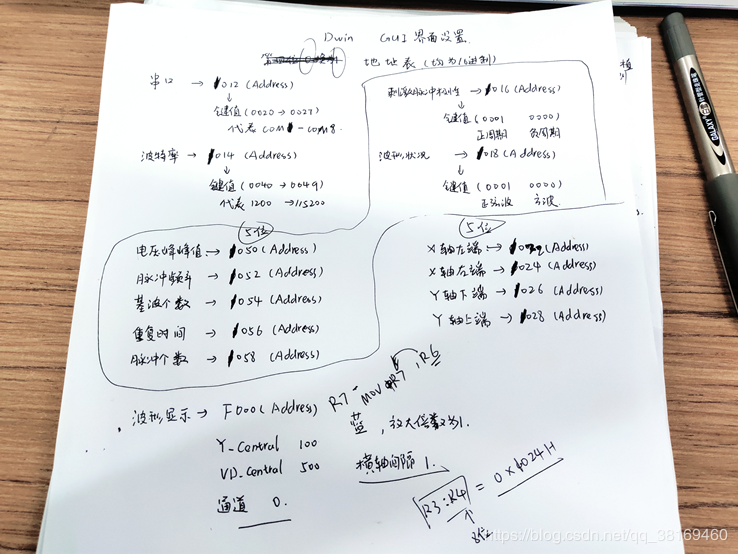 Dwin GUI 界面设置.
地址表 (均为16进制)
串口 → 1012 (Address)
键值 (0020 → 0027)
代表 COM1 - COM8.
波特率 → 1014 (Address)
键值 (0040 → 0049)
代表 1200 → 115200
刺激脉冲极性 → 1016 (Address)
键值 (0001 0000)
正周期 负周期
波形状况 → 1018 (Address)
键值 (0001 0000)
正弦波 方波
5位
电压峰峰值 → 1050 (Address)
脉冲频率 → 1052 (Address)
基波个数 → 1054 (Address)
重复时间 → 1056 (Address)
脉冲个数 → 1058 (Address)
5位
X轴左端 → (Address)
X轴右端 → 1024 (Address)
Y轴下端 → 1026 (Address)
Y轴上端 → 1028 (Address)
波形显示 → F000 (Address) R7 - MOV R7, R6
蓝, 放大倍数为1.
Y_Central 100
VD_Central 500 横轴间隔 1.
通道 0.
R3:R4 = 0x6024H
GALAXY
https://blog.csdn.net/qq_38169460